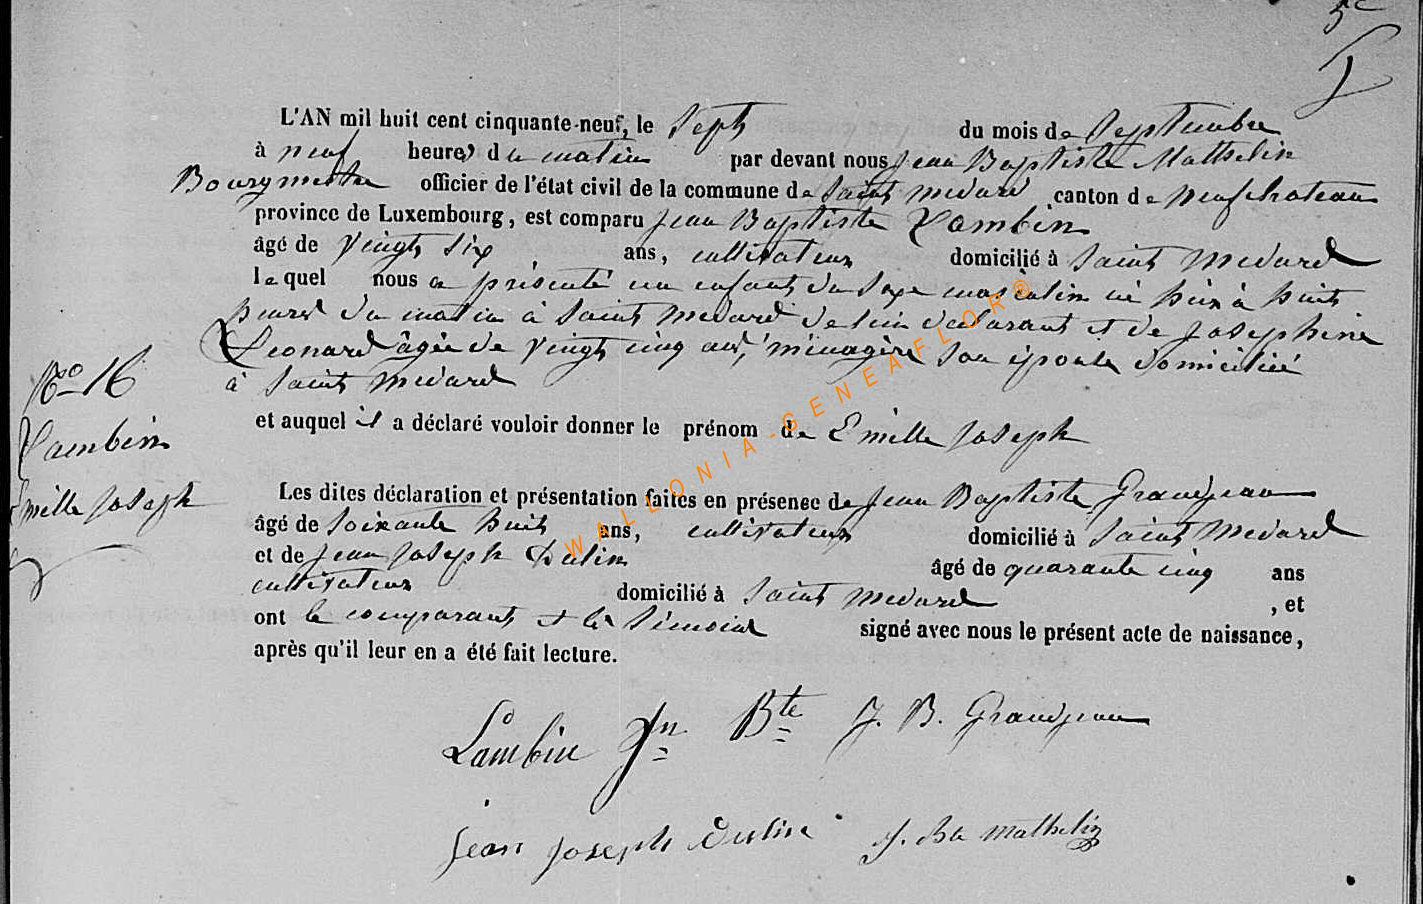 5e
L'AN mil huit cent cinquante-neuf, le Sept du mois de Septembre
à neuf heures du matin par devant nous Jean Baptiste Mathelin
Bourgmestre officier de l'état civil de la commune de Saint Medard canton de Neufchateau
province de Luxembourg, est comparu Jean Baptiste Lambin
âgé de vingt six ans, cultivateur domicilié à Saint Medard
lequel nous a présenté un enfant du sexe masculin né hier à huit
heures du matin à Saint Medard de lui déclarant et de Josephine
Leonard âgée de vingt cinq ans, ménagère son épouse domiciliée
à Saint Medard
No 16
Lambin
Emille Joseph
et auquel il a déclaré vouloir donner le prénom de Emille Joseph
Les dites déclaration et présentation faites en présence de Jean Baptiste Grandjean
âgé de soixante huit ans, cultivateur domicilié à Saint Medard
et de Jean Joseph âgé de quarante cinq ans
cultivateur domicilié à Saint Medard , et
ont le comparant et les témoins signé avec nous le présent acte de naissance,
après qu'il leur en a été fait lecture.
Lambin Jn Bte J. B. Grandjean
Jean Joseph J. Bte Mathelin
WALLONIA-GENEAFLOR®